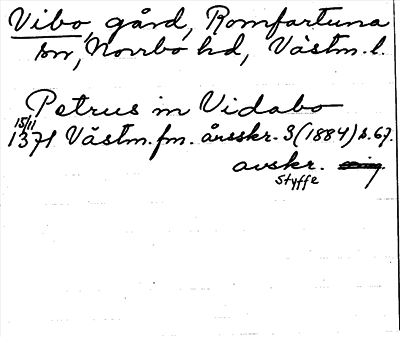 Vibo, gård, Romfartuna
sn, Norrbo hd, Västm. l.
Petrus in Vidabo
15/11
1371 Västm. fm. årsskr. 3 (1884) s. 67.
avskr.
Styffe